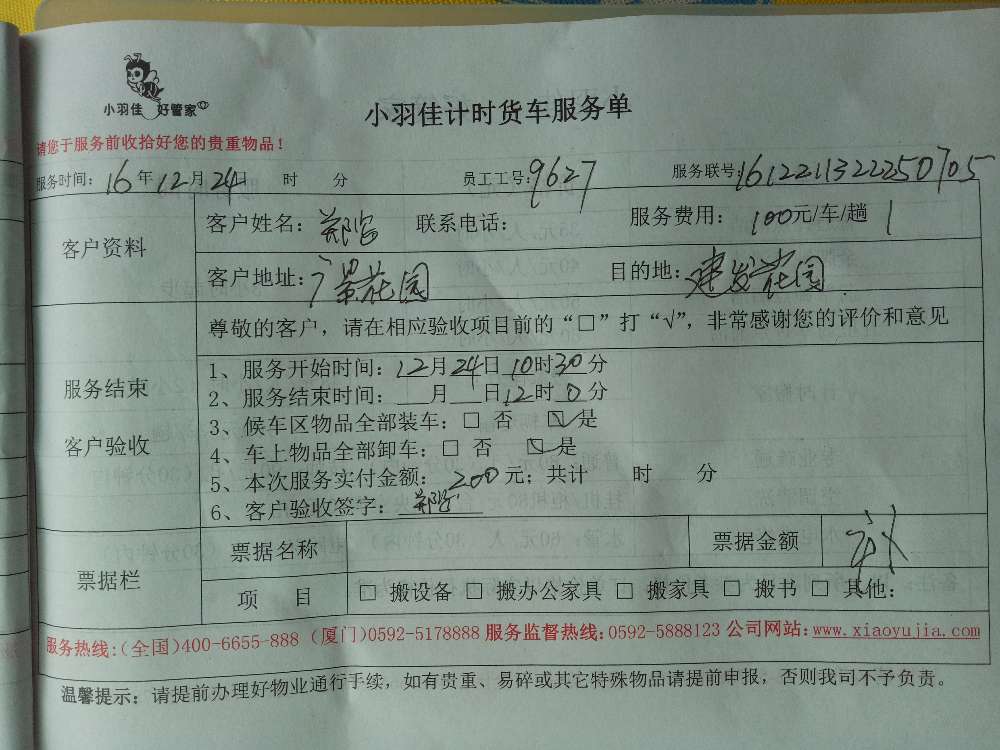 小羽佳 好管家
小羽佳计时货车服务单
请您于服务前收拾好您的贵重物品！
服务时间：16年12月24日 时 分 员工工号：9627 服务联号：161221132222250705
客户资料
客户姓名： 联系电话： 服务费用：100元/车/趟 1
客户地址：广景花园 目的地：建发花园
服务结束
客户验收
尊敬的客户，请在相应验收项目前的“□”打“√”，非常感谢您的评价和意见
1、服务开始时间：12月24日10时30分
2、服务结束时间：___月___日12时0分
3、候车区物品全部装车：□ 否 ☑ 是
4、车上物品全部卸车：□ 否 ☑ 是
5、本次服务实付金额：200元；共计 时 分
6、客户验收签字：
票据栏
票据名称 票据金额
项 目 □ 搬设备 □ 搬办公家具 □ 搬家具 □ 搬书 □ 其他：
服务热线：(全国)400-6655-888 (厦门)0592-5178888 服务监督热线：0592-5888123 公司网站：www.xiaoyujia.com
温馨提示：请提前办理好物业通行手续，如有贵重、易碎或其它特殊物品请提前申报，否则我司不予负责。